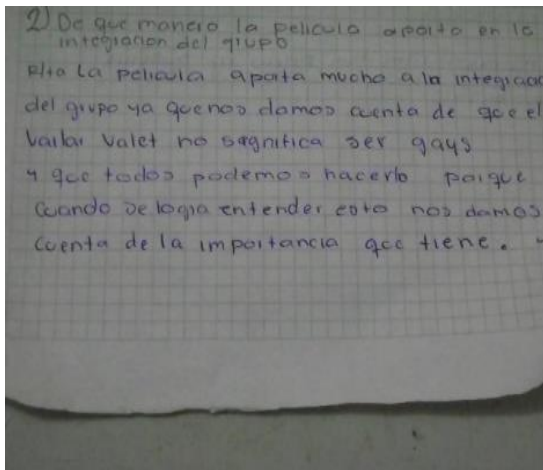 2) De que manera la pelicula aporto en la
integracion del grupo
R//a La pelicula aporta mucho a la integracion
del grupo ya que nos damos cuenta de que el
vailar valet no sagnifica ser gays
y que todos podemos hacerlo porque
cuando se logra entender esto nos damos
cuenta de la importancia que tiene.